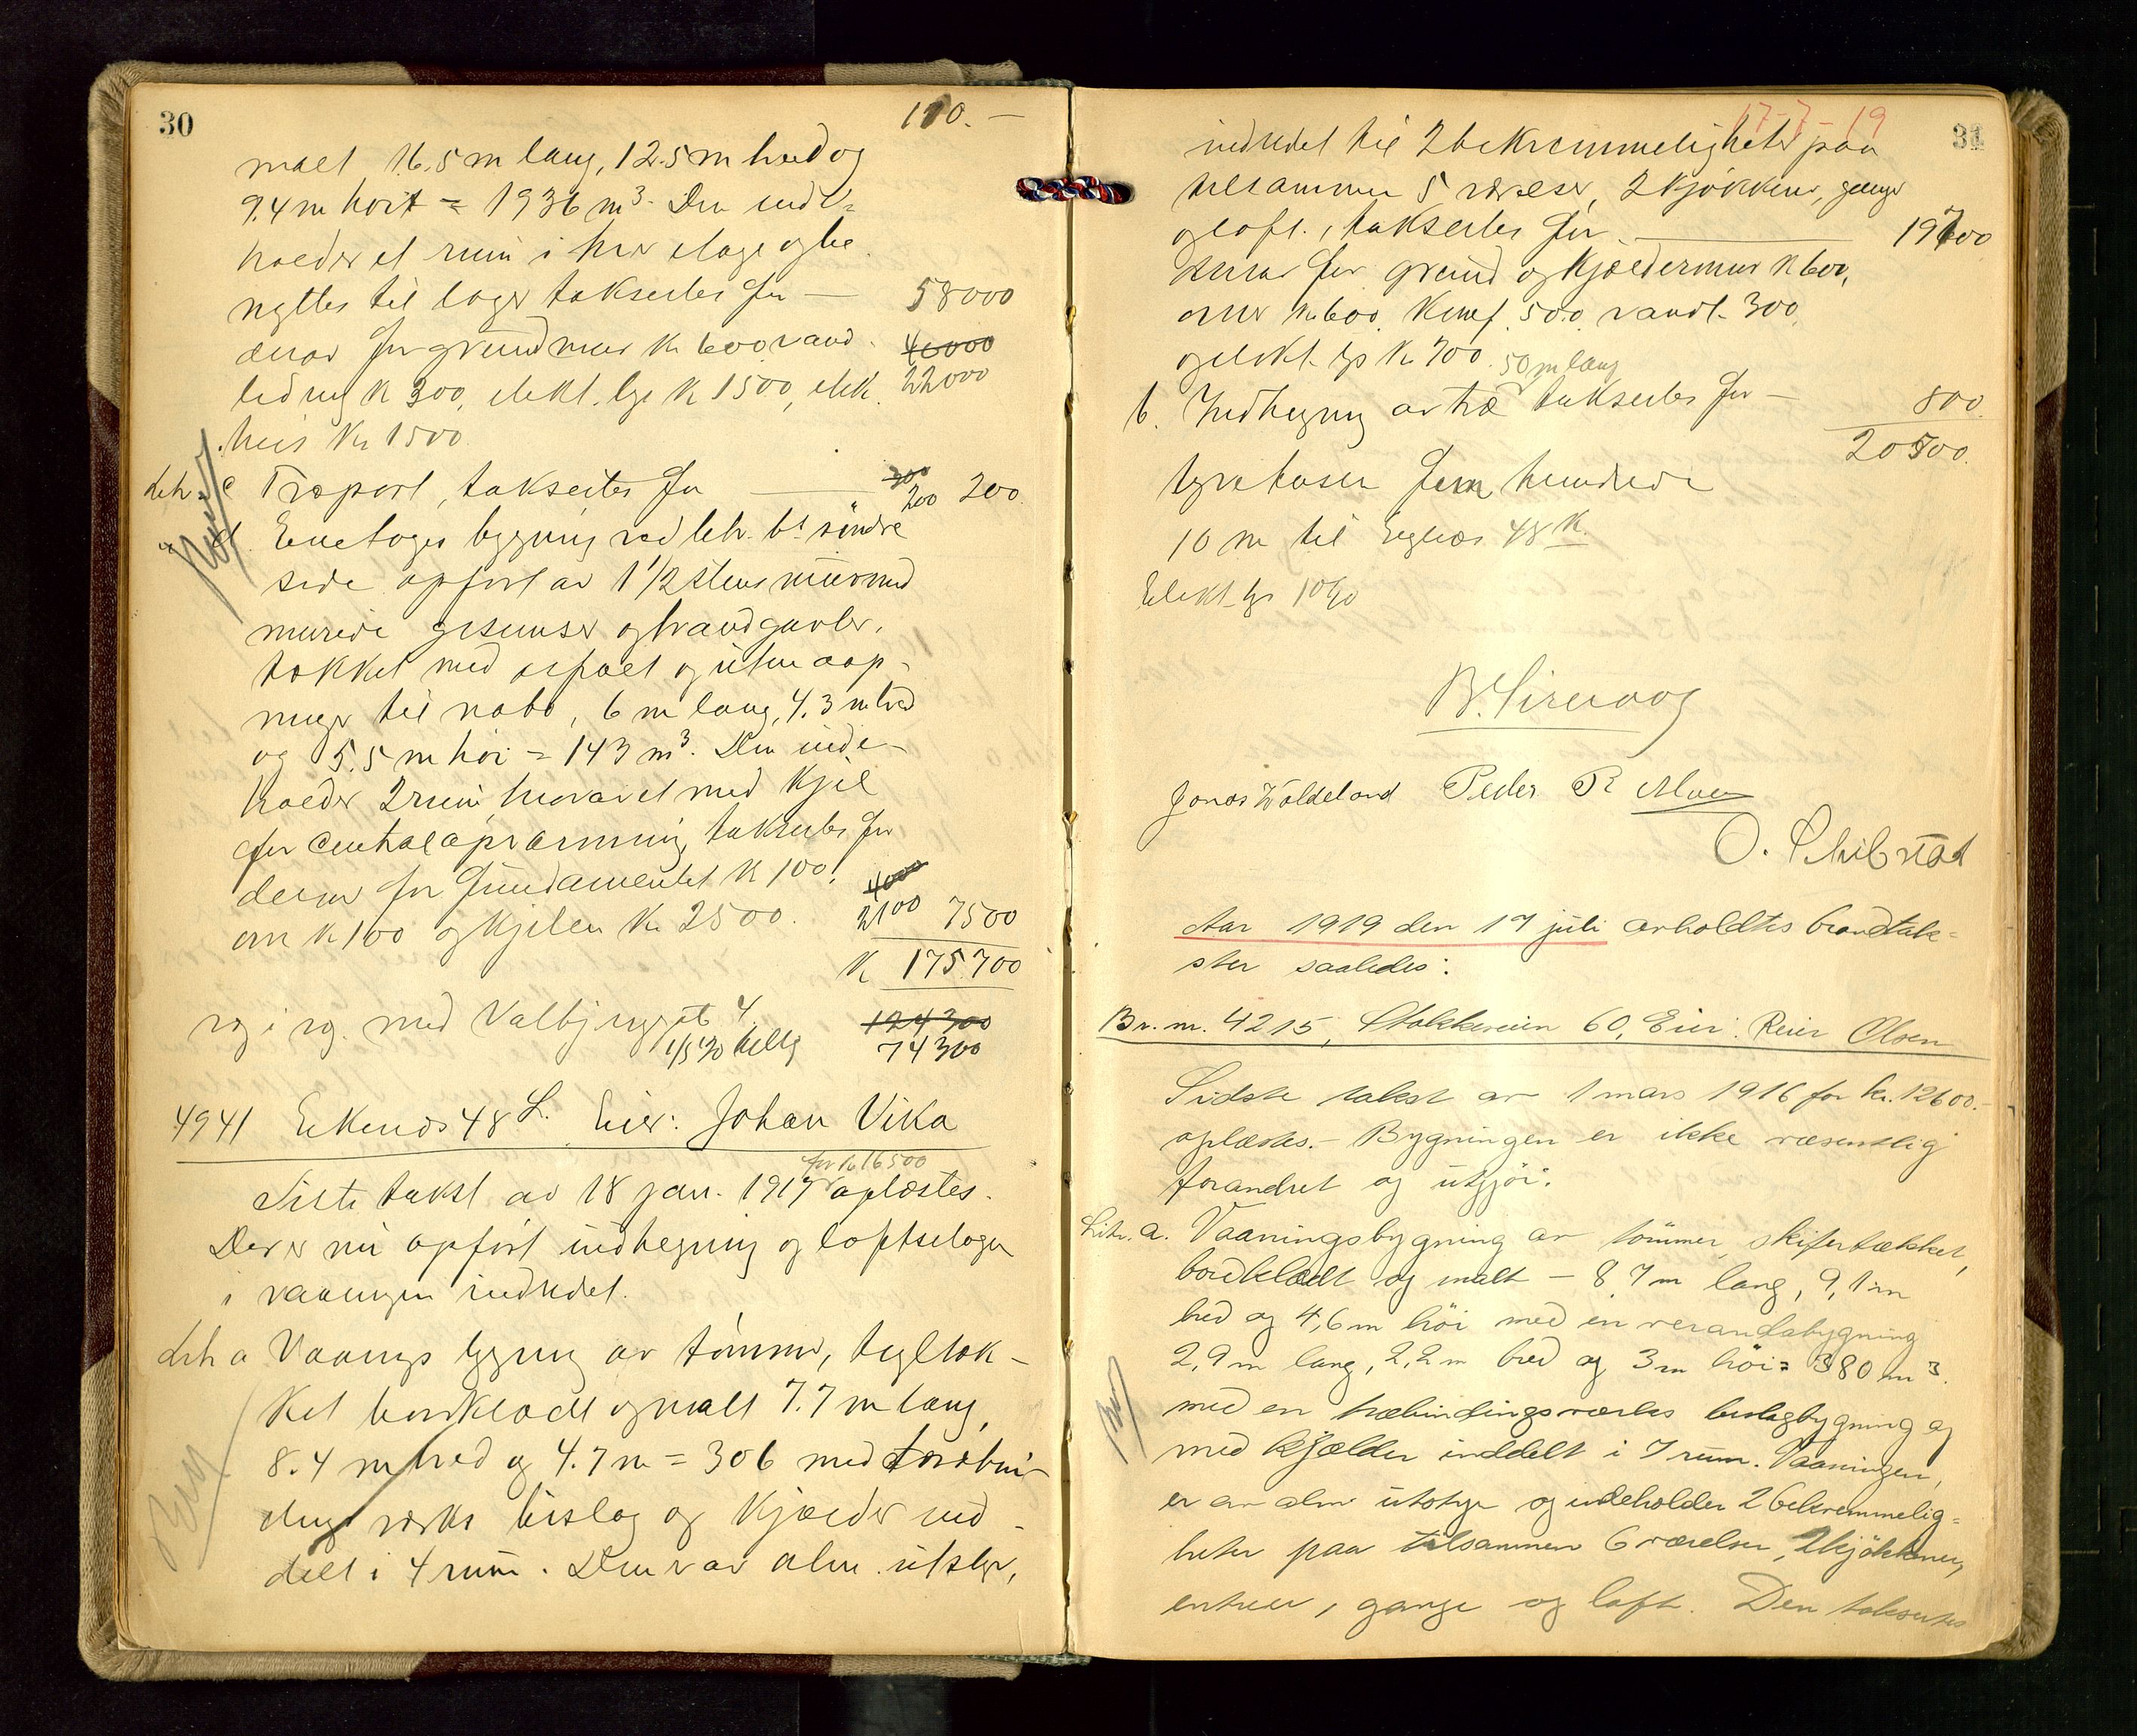 30
110.—
malt 16.5 m lang, 12.5 m bred og
9.4 m höit = 1936 m³. Den inde-
holder et rum i hver etage og be
nyttes til lager taksertes for — 58000
derav for grundmur K 600 vand- 46000
ledning K 300, elekt. lys K 1500, elek. 22000
heis Kr 1500
Litr. c Træport, takseites for — 300 200 200
" d. Enetages bygning ved litr. b's söndre
side opfört av 1 1/2 stens mur med
murede gesimser og brandgavler,
tækket med asfalt og uten aap-
ninger til nabo, 6 m lang, 4.3 m bred
og 5.5 m höi = 143 m³. Den inde-
holder 2 rum, hvorav et med kjel
for centralopvarmning, takseites for
derav for fundamentet K 100, 4000
ovn K 100 og kjelen Kr. 2500. 2100 7500
K 175.700
og i rg. med Valbjergst 4. 124300
1/5 '30 74300
4941 Eikenes 48 L. Eier: Johan Vika
for kr 16500
Siste takst av 18 jan. 1917 oplæstes.
Der er nu opfört indhegning og loftsetagen
i vaaningen indredet.
Litr a Vaanings bygning av tömmer, tegltæk-
ket bordklædt og malt 7.7 m lang,
8.4 m bred og 4.7 m = 306 med træbin-
dings værks bislag og kjælder ind-
delt i 4 rum. Den er av alm. utstyr,
17-7-19
31
indredet til 2 bekvemmeligheter paa
tilsammen 5 værelser, 2 kjökkener, gange
og loft, takseites for — 19700
derav for grund og kjældermur K 600,
ovner kr 600. Komf. 500, vandl. 300,
og elekt. lys Kr 700.
50 m lang
b. Indhegning av træ takseites for — 800
20500.
tyvetusen fem hundrede
10 m til 48 K.
Elekt. lys
B. Sirevaag
Jonas Voldeland Peder R Moe
O. Schibstad
Aar 1919 den 17 juli avholdtes brandtak-
ster saaledes:
Br. nr. 4215, Stokkaveien 60, Eier: Reier Olsen
Sidste takst av 1 mars 1916 for kr. 12600.-
oplæstes. – Bygningen er ikke væsentlig
forandret og utgjör:
Litr. a. Vaaningsbygning av tömmer, skifertækket,
bordklædt og malt – 8,7 m lang, 9,1 m
bred og 4,6 m höi med en verandabygning
2,9 m lang, 2,2 m bred og 3 m höi = 380 m³.
med en træbindingsværks bislagbygning og
med kjælder inddelt i 7 rum. Vaaningen,
er av alm. utstyr og indeholder 2 bekvemmelig-
heter paa tilsammen 6 værelser, 2 kjökkener,
entreer, gange og loft. Den takseites